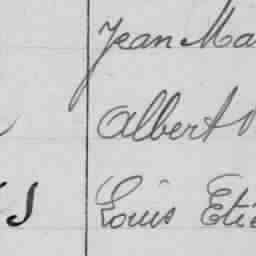 Jean Ma
Albert
Louis Eti